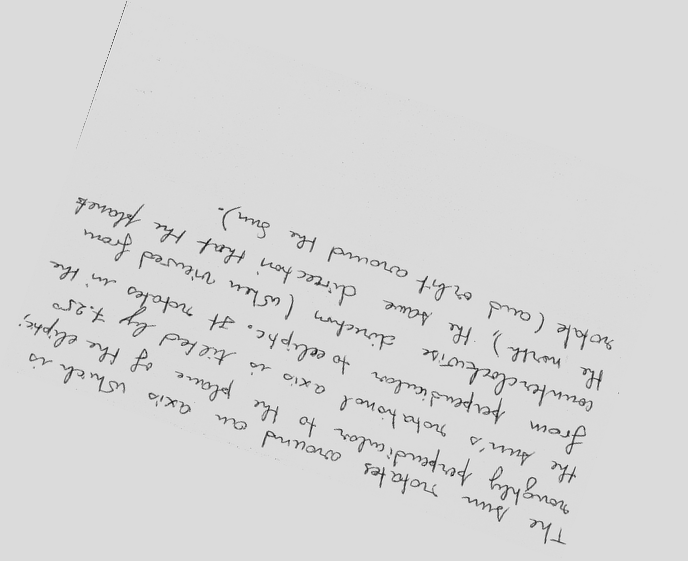 The sun rotates around an axis which is
roughly perpendicular to the plane of the eliptic;
the sun's rotational axis is tilted by 7.250
from perpendicular to ecliptic. It rotates in the
counterclockwise direction (when viewed from
the north), the same direction that the planets
rotate (and orbit around the Sun).